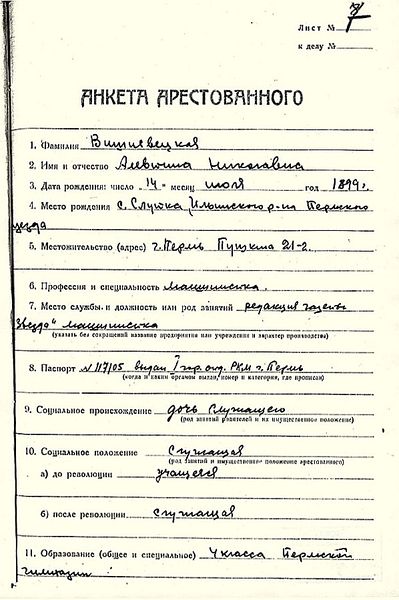 Лист № 7
к делу №
АНКЕТА АРЕСТОВАННОГО
1. Фамилия Вишневецкая
2. Имя и отчество Алевтина Николаевна
3. Дата рождения: число "14" месяц июля год 1899 г.
4. Место рождения с. Слудка, Ильинского р-на Пермского
уезда
5. Местожительство (адрес) г. Пермь Пушкина 21-2.
6. Профессия и специальность машинистка.
7. Место службы и должность или род занятий редакция газеты
"Звезда" машинистка
(указать без сокращений название предприятия или учреждения и характер производства)
8. Паспорт № 117105 выдан I гор. отд. РКМ г. Пермь
(когда и каким органом выдан, номер и категория, где прописан)
9. Социальное происхождение дочь служащего
(род занятий родителей и их имущественное положение)
10. Социальное положение служащая
(род занятий и имущественное положение арестованного)
а) до революции учащаяся
б) после революции служащая
11. Образование (общее и специальное) 4 класса Пермской
гимназии